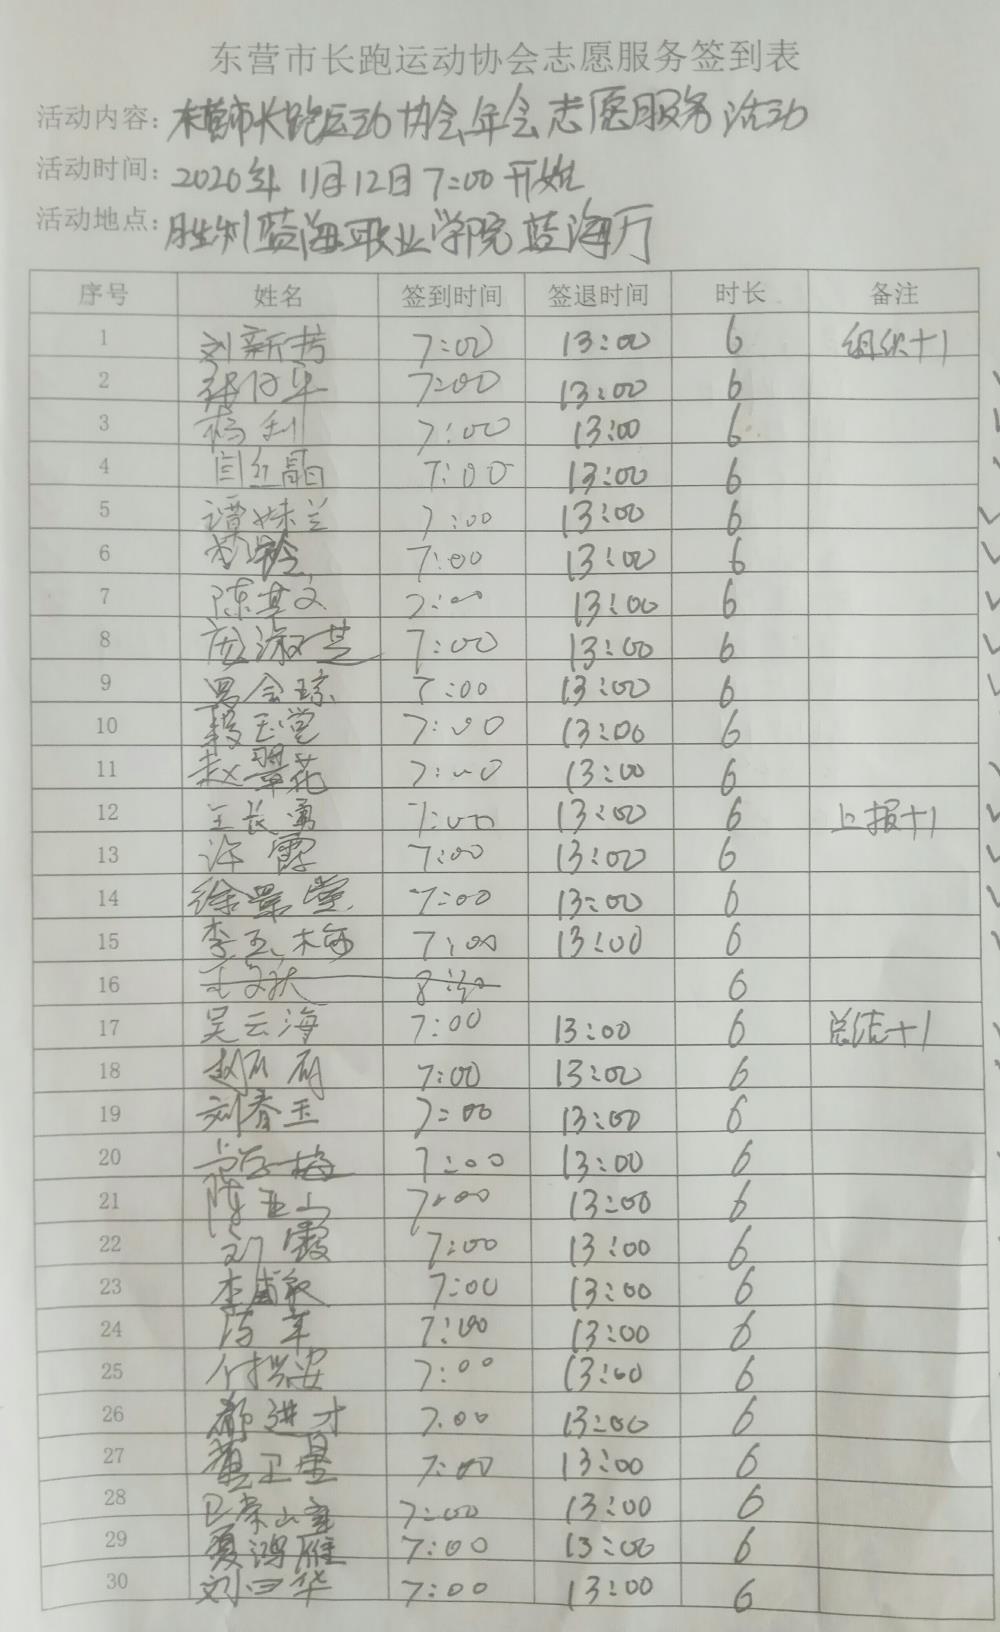 东营市长跑运动协会志愿服务签到表
活动内容: 东营市长跑运动协会年会志愿服务活动
活动时间: 2020年11月12日7:00开始
活动地点: 胜利蓝海职业学院蓝海厅
序号 姓名 签到时间 签退时间 时长 备注
1 刘新芳 7:00 13:00 6 组织+1
2 7:00 13:00 6
3 杨利 7:00 13:00 6
4 闫红晶 7:00 13:00 6
5 谭妹兰 7:00 13:00 6
6 7:00 13:00 6
7 陈其文 7:00 13:00 6
8 庞淑芝 7:00 13:00 6
9 7:00 13:00 6
10 7:00 13:00 6
11 赵翠花 7:00 13:00 6
12 王长勇 7:00 13:00 6 上报+1
13 许霞 7:00 13:00 6
14 徐景堂 7:00 13:00 6
15 李玉梅 7:00 13:00 6
16 6
17 吴云海 7:00 13:00 6 总结+1
18 7:00 13:00 6
19 刘春玉 7:00 13:00 6
20 7:00 13:00 6
21 陈亚山 7:00 13:00 6
22 刘霞 7:00 13:00 6
23 7:00 13:00 6
24 7:00 13:00 6
25 7:00 13:00 6
26 郝进才 7:00 13:00 6
27 7:00 13:00 6
28 7:00 13:00 6
29 夏鸿雁 7:00 13:00 6
30 刘四华 7:00 13:00 6